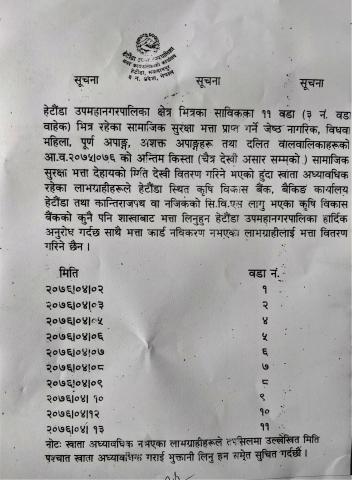 हेटौंडा उपमहानगरपालिका
नगर कार्यपालिकाको कार्यालय
हेटौंडा, मकवानपुर
३ नं. प्रदेश, नेपाल
सूचना सूचना सूचना
हेटौंडा उपमहानगरपालिका क्षेत्र भित्रका साविकका ११ वडा (३ नं. वडा
वाहेक) भित्र रहेका सामाजिक सुरक्षा भत्ता प्राप्त गर्ने जेष्ठ नागरिक, विधवा
महिला, पूर्ण अपाङ्ग, अशक्त अपाङ्गहरू तथा दलित वालवालिकाहरूको
आ.व.२०७५।०७६ को अन्तिम किस्ता (चैत्र देखी असार सम्मको) सामाजिक
सुरक्षा भत्ता देहायको मिति देखी वितरण गरिने भएको हुंदा खाता अध्यावधिक
रहेका लाभग्राहीहरूले हेटौंडा स्थित कृषि विकास बैंक, बैकिङ कार्यालय
हेटौंडा तथा कान्तिराजपथ वा नजिकको सि.वि.एस लागु भएका कृषि विकास
बैंकको कुनै पनि शाखाबाट भत्ता लिनुहुन हेटौंडा उपमहानगरपालिका हार्दिक
अनुरोध गर्दछ साथै भत्ता कार्ड नविकरण नभएका लाभग्राहीलाई भत्ता वितरण
गरिने छैन ।
मिति वडा नं.
२०७६।०४।०२ १
२०७६।०४।०३ २
२०७६।०४।०५ ४
२०७६।०४।०६ ५
२०७६।०४।०७ ६
२०७६।०४।०८ ७
२०७६।०४।०९ ८
२०७६।०४। १० ९
२०७६।०४।१२ १०
२०७६।०४। १३ ११
नोटः खाता अध्यावधिक नभएका लाभग्राहीहरूले तपसिलमा उल्लेखित मिति
पश्चात खाता अध्यावधिक गराई भुक्तानी लिनु हुन समेत सुचित गर्दछौं ।